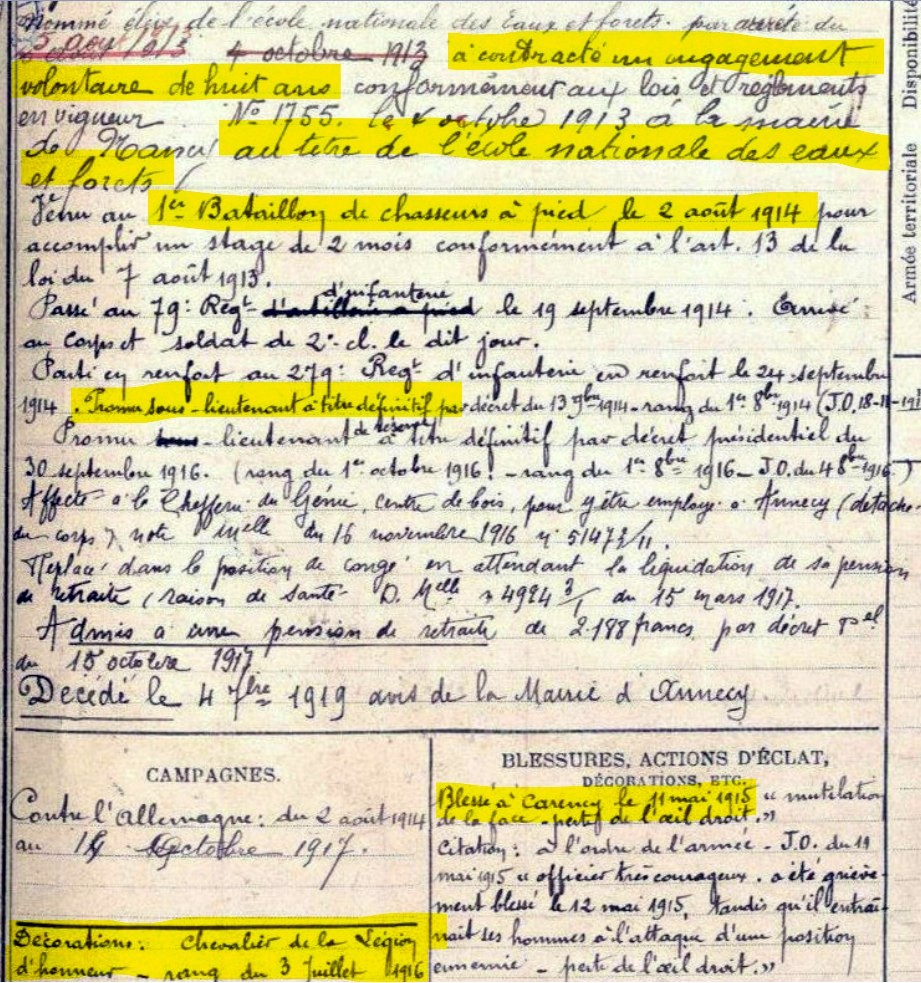 Nommé élève de l'école nationale des Eaux et forets. par arrêté du
5 aout 1913 4 octobre 1913 à contracté un engagement
volontaire de huit ans conformément aux lois et règlements
en vigueur N° 1755. le 4 octobre 1913 à la mairie
de Nancy au titre de l'école nationale des eaux
et forets
Venu au 1er Bataillon de chasseurs à pied le 2 août 1914 pour
accomplir un stage de 2 mois conformément à l'art. 13 de la
loi du 7 août 1913.
d'infanterie
Passé au 79e Régt d'artillerie à pied le 19 septembre 1914. Arrivé
au corps et soldat de 2e cl. le dit jour.
Parti en renfort au 279e Régt d'infanterie en renfort le 24 septembre
1914. Promu sous-lieutenant à titre définitif par décret du 13 9bre 1914 - rang du 1er 8bre 1914 (J.O. 18-11-191
de réserve
Promu sous-lieutenant à titre définitif par décret présidentiel du
30 septembre 1916. (rang du 1er octobre 1916! - rang du 1er 8bre 1916 - J.O. du 4 8bre 1916)
Affecté à la Chefferie du Génie, centre de bois, pour y être employé à Annecy (détaché
du corps) note Mnelle du 16 novembre 1916 n°
Replacé dans la position de congé en attendant la liquidation de sa pension
de retraite (raison de santé D. Melle n 4994 3/1 du 15 mars 1917.
Admis a une pension de retraite de 2.188 francs par décret Pel
du 15 octobre 1917
Décédé le 4 7bre 1919 avis de la Mairie d'Annecy
Disponibilité
Armée territoriale
CAMPAGNES.
Contre l'Allemagne: du 2 août 1914
au 14 Octobre 1917.
Décorations: Chevalier de la Légion
d'honneur - rang du 3 Juillet 1916
BLESSURES, ACTIONS D'ÉCLAT,
DÉCORATIONS, ETC.
Blessé à Carency le 11 mai 1915 « mutilation
de la face - perte de l'œil droit.»
Citation: à l'ordre de l'armée - J.O. du 19
mai 1915 « officier très courageux. a été griève-
ment blessé le 12 mai 1915, tandis qu'il entraî-
nait ses hommes à l'attaque d'une position
ennemie - perte de l'œil droit.»